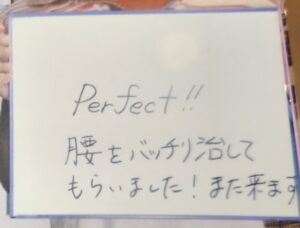 Perfect!!
腰をバッチリ治して
もらいました！また来ます